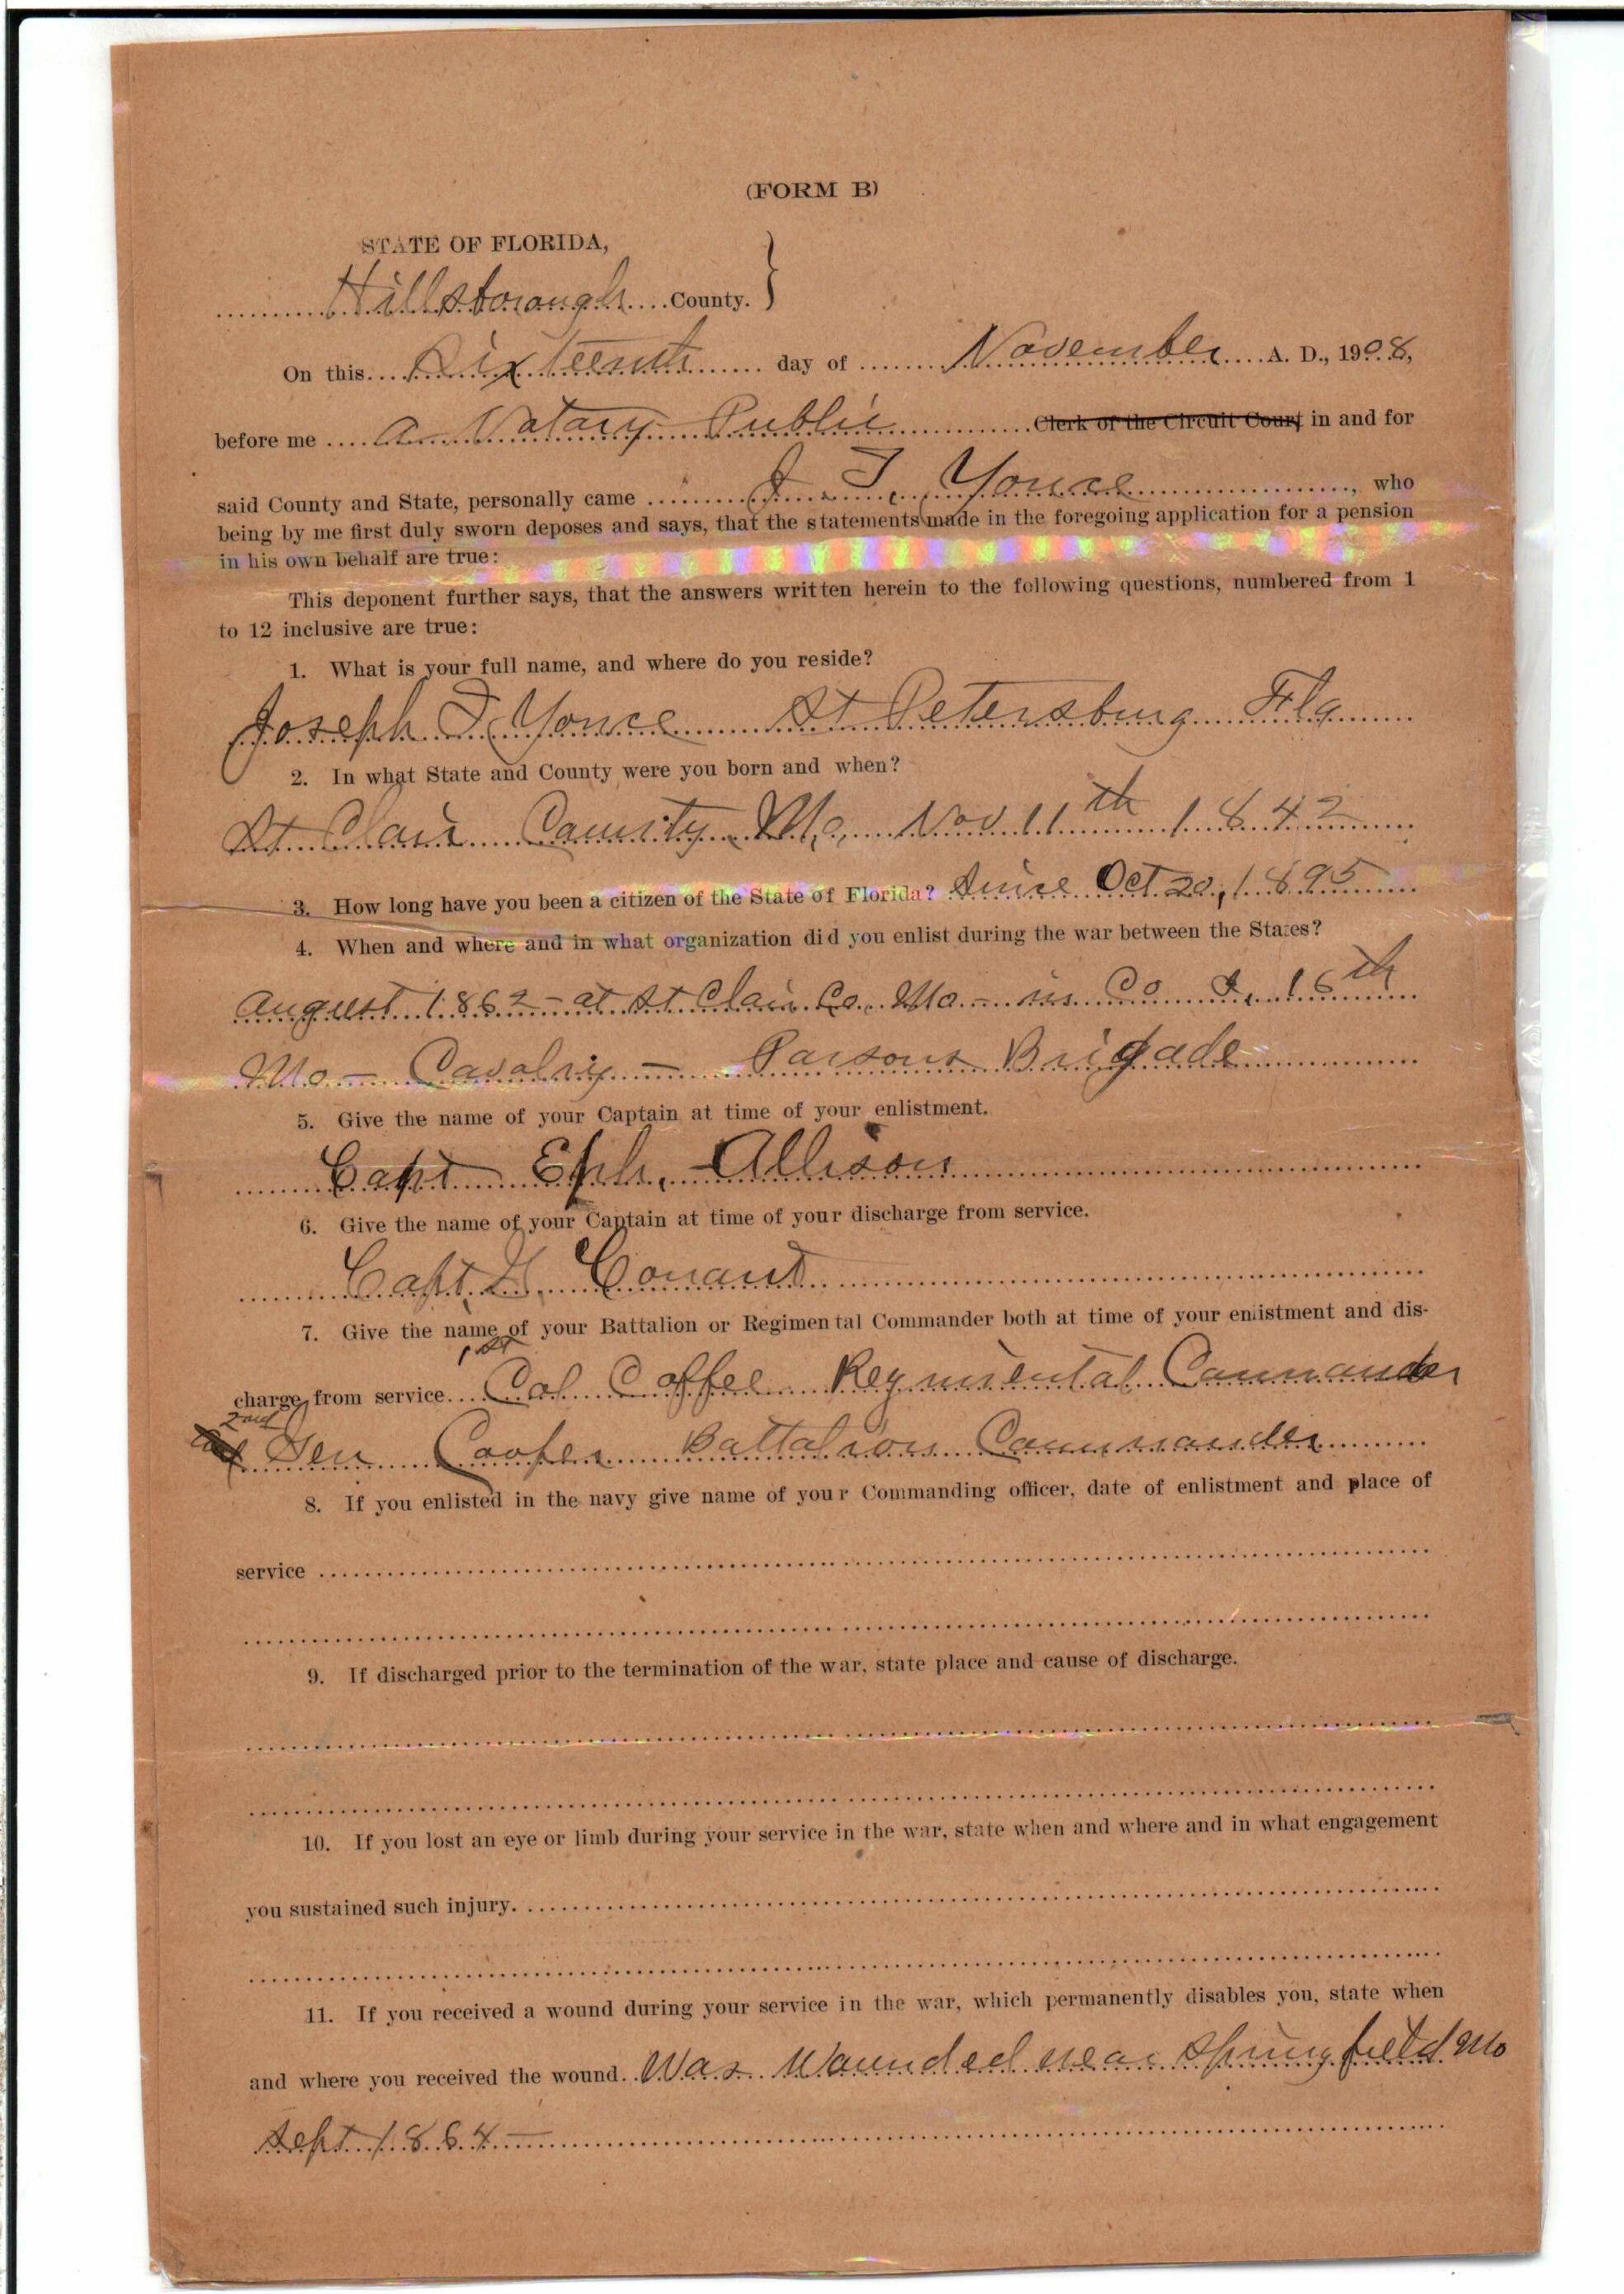 (FORM B)
STATE OF FLORIDA,
Hillsborough County.
On this Sixteenth day of November A. D., 1908,
before me a Notary Public Clerk of the Circuit Court in and for
said County and State, personally came J. T. Yonce, who
being by me first duly sworn deposes and says, that the statements made in the foregoing application for a pension
in his own behalf are true:
This deponent further says, that the answers written herein to the following questions, numbered from 1
to 12 inclusive are true:
1. What is your full name, and where do you reside?
Joseph T. Yonce St Petersburg Fla
2. In what State and County were you born and when?
St Clair County, Mo, Nov 11th 1842
3. How long have you been a citizen of the State of Florida? Since Oct 20, 1895
4. When and where and in what organization did you enlist during the war between the States?
August 1862 - at St Clair Co. Mo - in Co I, 16th
Mo - Cavalry - Parsons Brigade
5. Give the name of your Captain at time of your enlistment.
Capt Eph. Allison
6. Give the name of your Captain at time of your discharge from service.
Capt. Conant
7. Give the name of your Battalion or Regimental Commander both at time of your enlistment and dis-
1st
charge from service. Col Coffee Regimental Commander
2nd
Gen Cooper Battalion Commander
8. If you enlisted in the navy give name of your Commanding officer, date of enlistment and place of
service
9. If discharged prior to the termination of the war, state place and cause of discharge.
10. If you lost an eye or limb during your service in the war, state when and where and in what engagement
you sustained such injury.
11. If you received a wound during your service in the war, which permanently disables you, state when
and where you received the wound. Was Wounded near Springfield Mo
Sept 1864 -